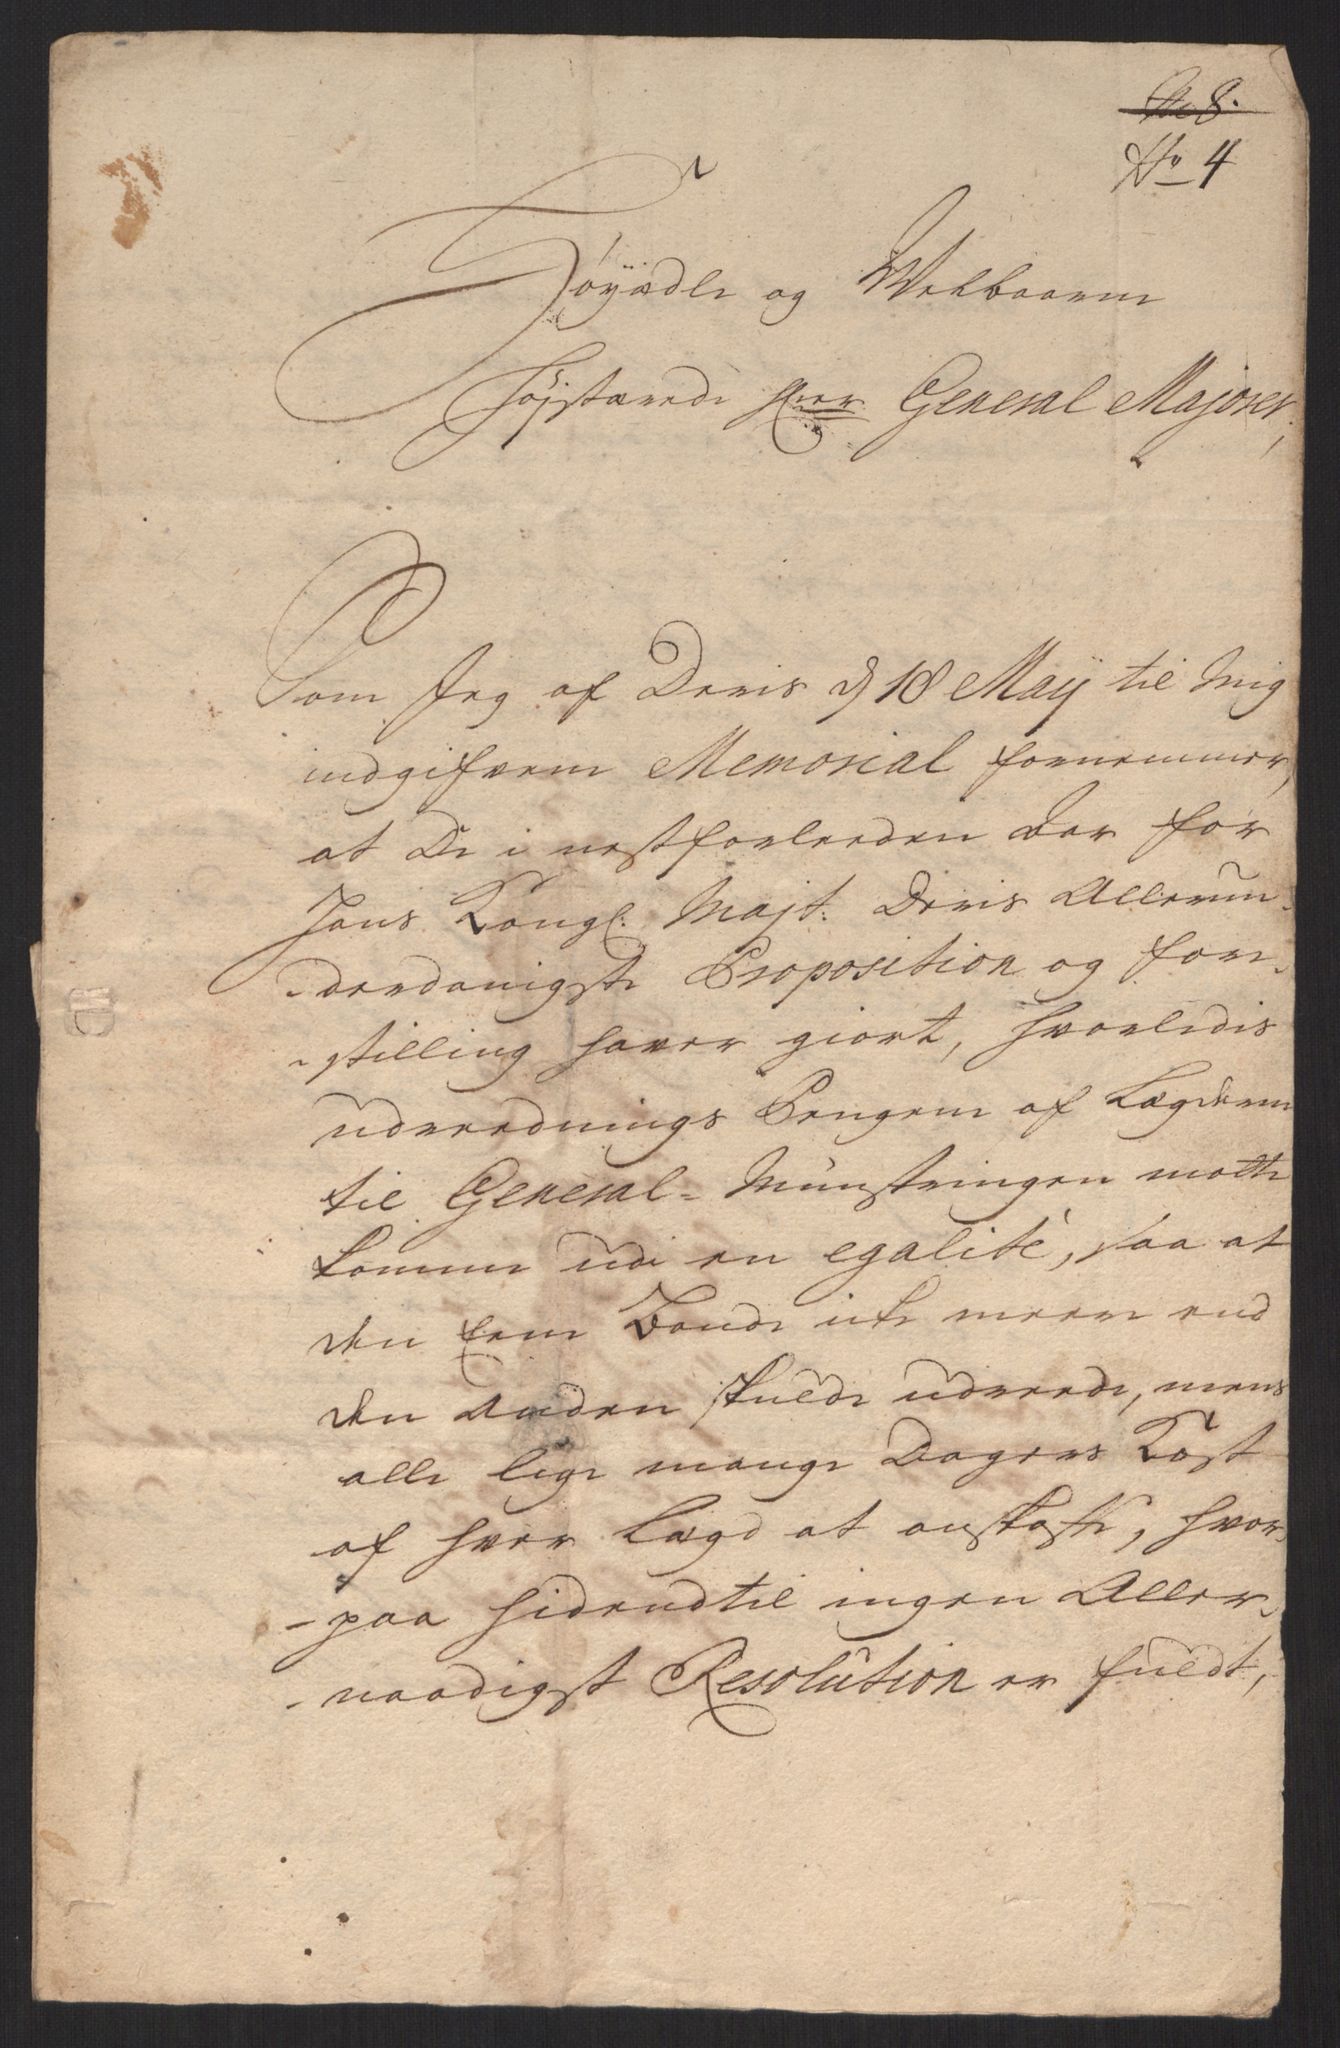 No 8.
No 4
Höyædle og Welbaarne
Höjstærede Herr General Majorer,
Som Jeg af Deris d 18 Maij til Mig
indgifvene Memorial fornemmer,
at De i nestforleeden Aar for
Hans Kongl. Mayt: Deris Allerun-
-derdanigste Proposition og fore-
-stilling haver giort, hvorledis
udreednings Pengene af Lægderne
til General-Munstringen motte
komme udi en egalitè, saa at
den eene Bonde icke meere end
den anden skulde udreede, mens
alle lige mange Dagers Kost
af hver Lægd at anskaffe, hvor-
-paa hidendtil ingen Aller-
-naadigst Resolution er fuldt,